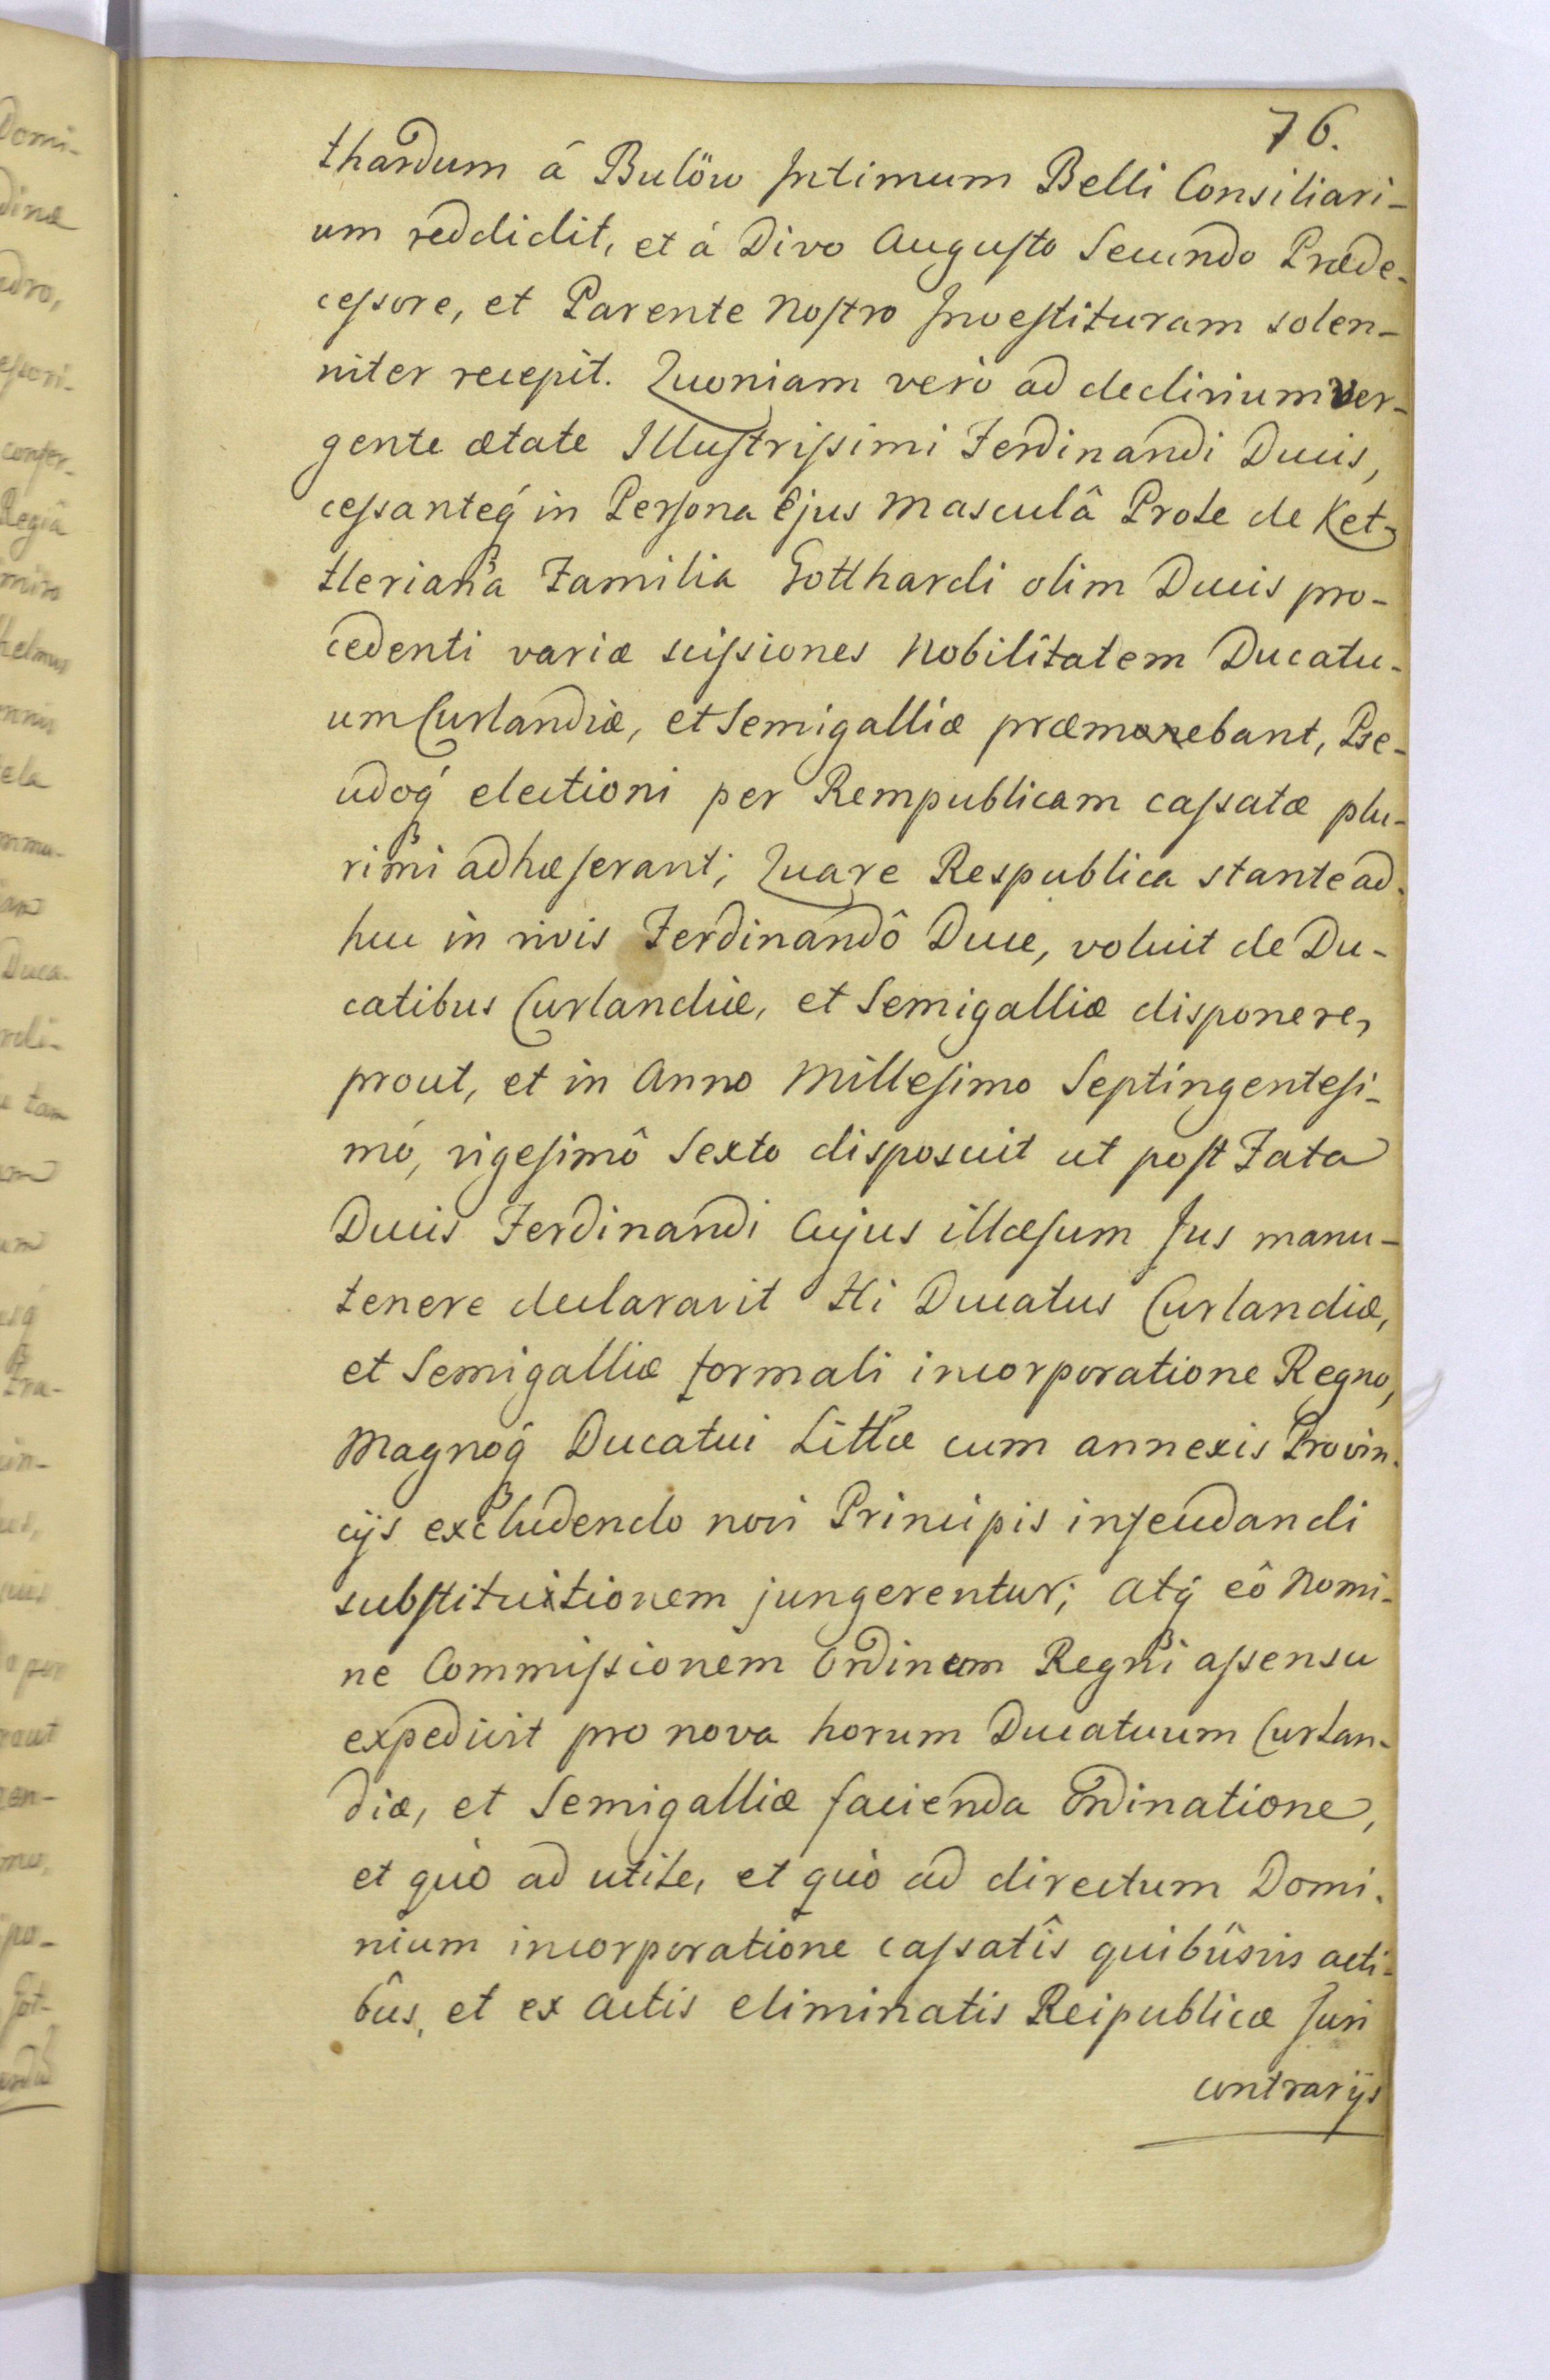 76.
thardum á Bulöw Intimum Belli Consiliari-
um reddidit, et á Divo Augusto Secundo Præde-
cessore, et Parente Nostro Investituram solen-
niter recepit. Quoniam verò ad declinium ver-
gente ætate Illustrissimi Ferdinandi Ducis,
cessanteq́ in Persona Ejus Masculâ Prole de Ket-
tleriana Familia Gotthardi olim Ducis pro-
cedenti variæ scissiones Nobilitatem Ducatu-
um Curlandiæ, et Semigalliæ præmonebant, Pse-
udoq́ electioni per Rempublicam cassatæ plu-
rimi adhæserant; Quare Respublica stante ad-
huc in vivis Ferdinandô Duce, voluit de Du-
catibus Curlandiæ, et Semigalliæ disponere,
prout, et in Anno Millesimo Septingentesi-
mó, vigesimô Sexto disposuit ut post Fata
Ducis Ferdinandi Cujus illæsum Jus manu-
tenere declaravit Hi Ducatus Curlandiæ,
et Semigalliæ formali incorporatione Regno,
Magnoq́ Ducatui Littæ cum annexis Provin-
cijs excludendo novi Principis infeudandi
substituitionem jungerentur; Atq́ eô Nomi-
ne Commissionem Ordinum Regni assensu
expedivit pro nova horum Ducatuum Curlan-
diæ, et Semigalliæ facienda Ordinatione,
et quò ad utile, et quò ad directum Domi-
nium incorporatione cassatîs quibûsvis acti-
bûs, et ex Actis eliminatis Reipublicæ Juri
contrarijs